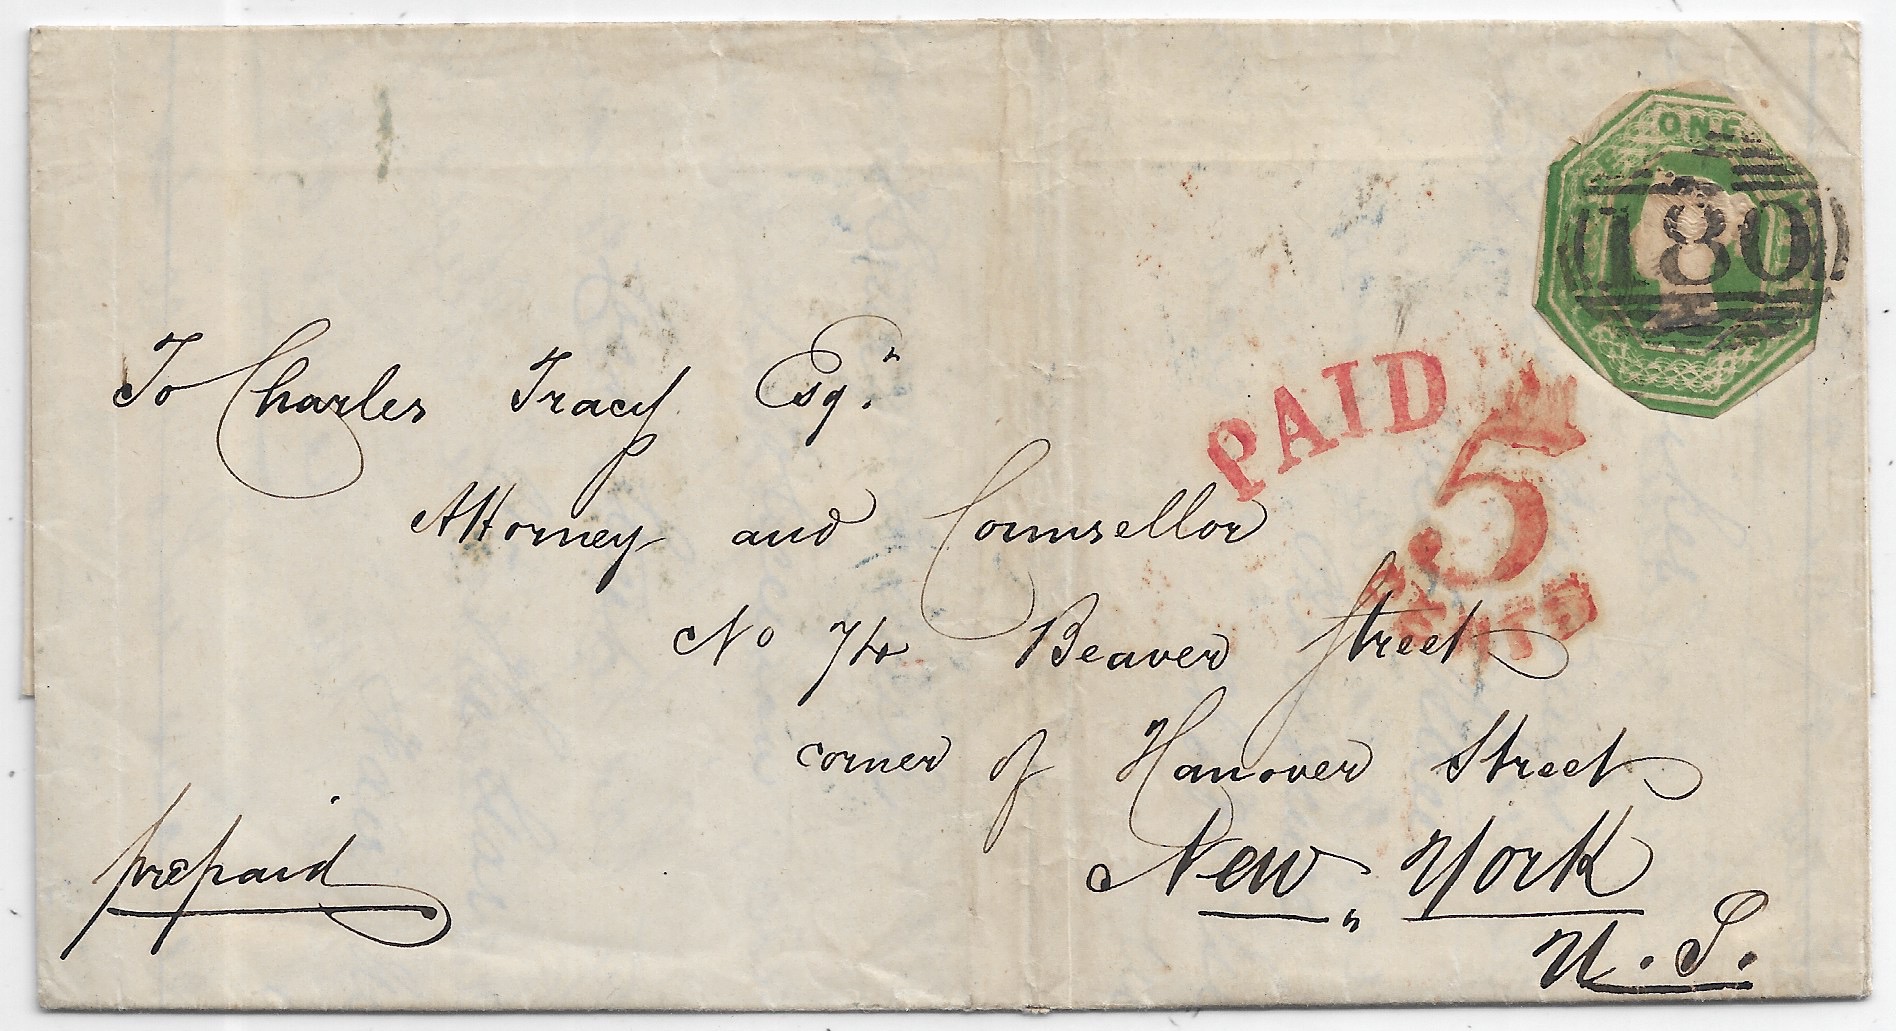 ONE
180
PAID
5
CENTS
To Charles Tracy Esqr
Attorney and Counsellor
No 74 Beaver Street
corner of Hanover Street
New York
U. S.
prepaid